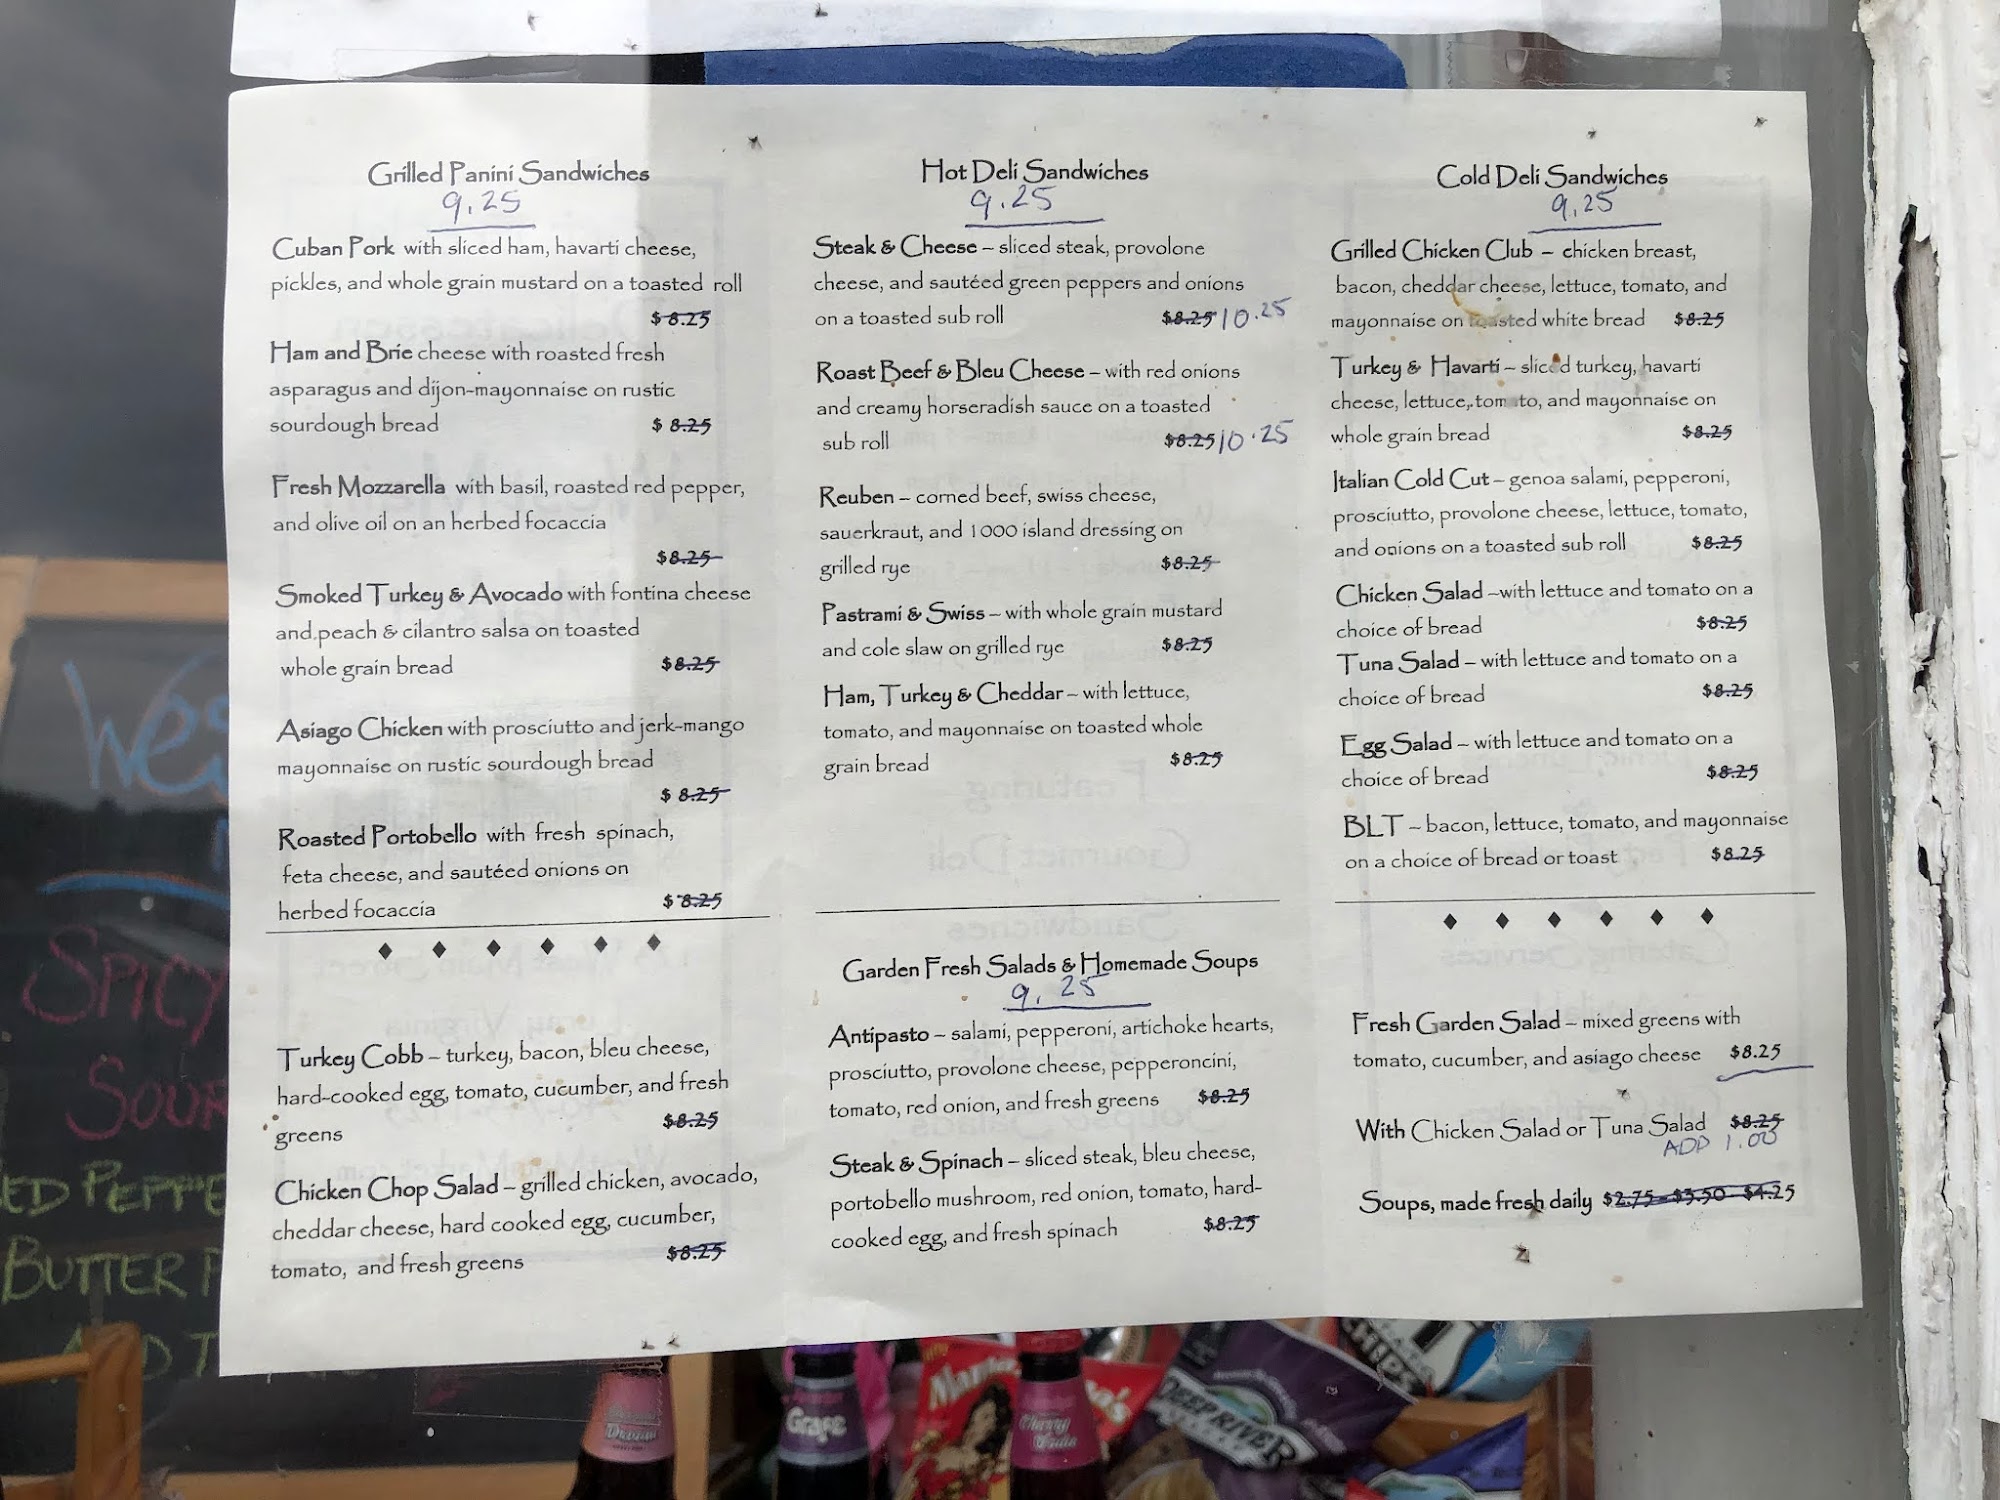 Grilled Panini Sandwiches
9.25
Cuban Pork with sliced ham, havarti cheese,
pickles, and whole grain mustard on a toasted roll
$ 8.25
Ham and Brie cheese with roasted fresh
asparagus and dijon-mayonnaise on rustic
sourdough bread $ 8.25
Fresh Mozzarella with basil, roasted red pepper,
and olive oil on an herbed focaccia
$8.25
Smoked Turkey & Avocado with fontina cheese
and peach & cilantro salsa on toasted
whole grain bread $8.25
Asiago Chicken with prosciutto and jerk-mango
mayonnaise on rustic sourdough bread
$ 8.25
Roasted Portobello with fresh spinach,
feta cheese, and sautéed onions on
herbed focaccia $ 8.25
Turkey Cobb – turkey, bacon, bleu cheese,
hard-cooked egg, tomato, cucumber, and fresh
greens $8.25
Chicken Chop Salad – grilled chicken, avocado,
cheddar cheese, hard cooked egg, cucumber,
tomato, and fresh greens $8.25
Hot Deli Sandwiches
9.25
Steak & Cheese – sliced steak, provolone
cheese, and sautéed green peppers and onions
on a toasted sub roll $8.25 10.25
Roast Beef & Bleu Cheese – with red onions
and creamy horseradish sauce on a toasted
sub roll $8.25 10.25
Reuben – corned beef, swiss cheese,
sauerkraut, and 1000 island dressing on
grilled rye $8.25
Pastrami & Swiss – with whole grain mustard
and cole slaw on grilled rye $8.25
Ham, Turkey & Cheddar – with lettuce,
tomato, and mayonnaise on toasted whole
grain bread $8.25
Garden Fresh Salads & Homemade Soups
9.25
Antipasto – salami, pepperoni, artichoke hearts,
prosciutto, provolone cheese, pepperoncini,
tomato, red onion, and fresh greens $8.25
Steak & Spinach – sliced steak, bleu cheese,
portobello mushroom, red onion, tomato, hard-
cooked egg, and fresh spinach $8.25
Cold Deli Sandwiches
9.25
Grilled Chicken Club – chicken breast,
bacon, cheddar cheese, lettuce, tomato, and
mayonnaise on toasted white bread $8.25
Turkey & Havarti – sliced turkey, havarti
cheese, lettuce, tomato, and mayonnaise on
whole grain bread $8.25
Italian Cold Cut – genoa salami, pepperoni,
prosciutto, provolone cheese, lettuce, tomato,
and onions on a toasted sub roll $8.25
Chicken Salad –with lettuce and tomato on a
choice of bread $8.25
Tuna Salad – with lettuce and tomato on a
choice of bread $8.25
Egg Salad – with lettuce and tomato on a
choice of bread $8.25
BLT – bacon, lettuce, tomato, and mayonnaise
on a choice of bread or toast $8.25
Fresh Garden Salad – mixed greens with
tomato, cucumber, and asiago cheese $8.25
With Chicken Salad or Tuna Salad $8.25
ADD 1.00
Soups, made fresh daily $2.75 - $3.50 - $4.25
SPICY
SOUR
BUTTER
Grape
DEEP RIVER
CHIPS